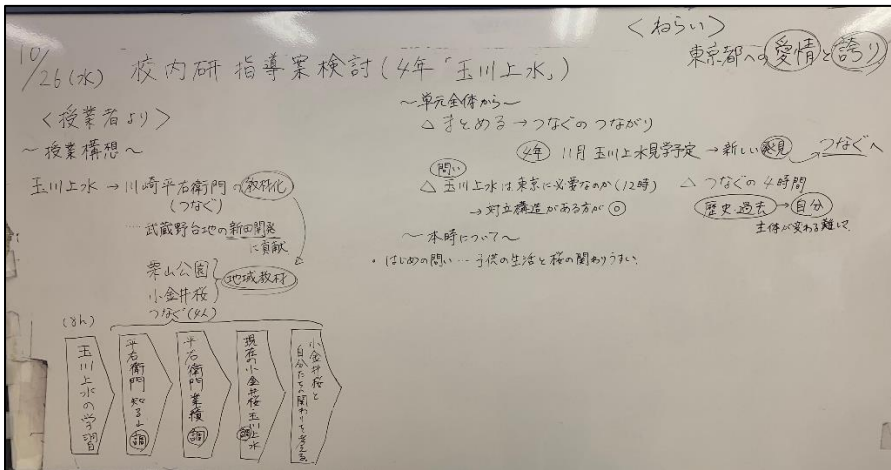 10/26(水) 校内研 指導案検討(4年「玉川上水」)
<授業者より>
〜授業構想〜
玉川上水→川崎平右衛門の教材化
(つなぐ)
武蔵野台地の新田開発
に貢献
栗山公園
小金井桜
地域教材
つなぐ(4h)
(8h)
玉川上水の学習
平右衛門 知る
調
平右衛門業績
調
現在の小金井桜・玉川上水
調
小金井桜と
自分たちの関わりを考える。
<ねらい>
東京都への愛情と誇り
〜単元全体から〜
△ まとめる→つなぐのつながり
4年 11月 玉川上水見学予定 →新しい発見 つなぐへ
問い
△ 玉川上水は東京に必要なのか(12時)
→対立構造がある方が◎
△ つなぐの4時間
歴史・過去→自分
主体が変わる難しさ
〜本時について〜
・はじめの問い…子供の生活と桜の関わりうすい。